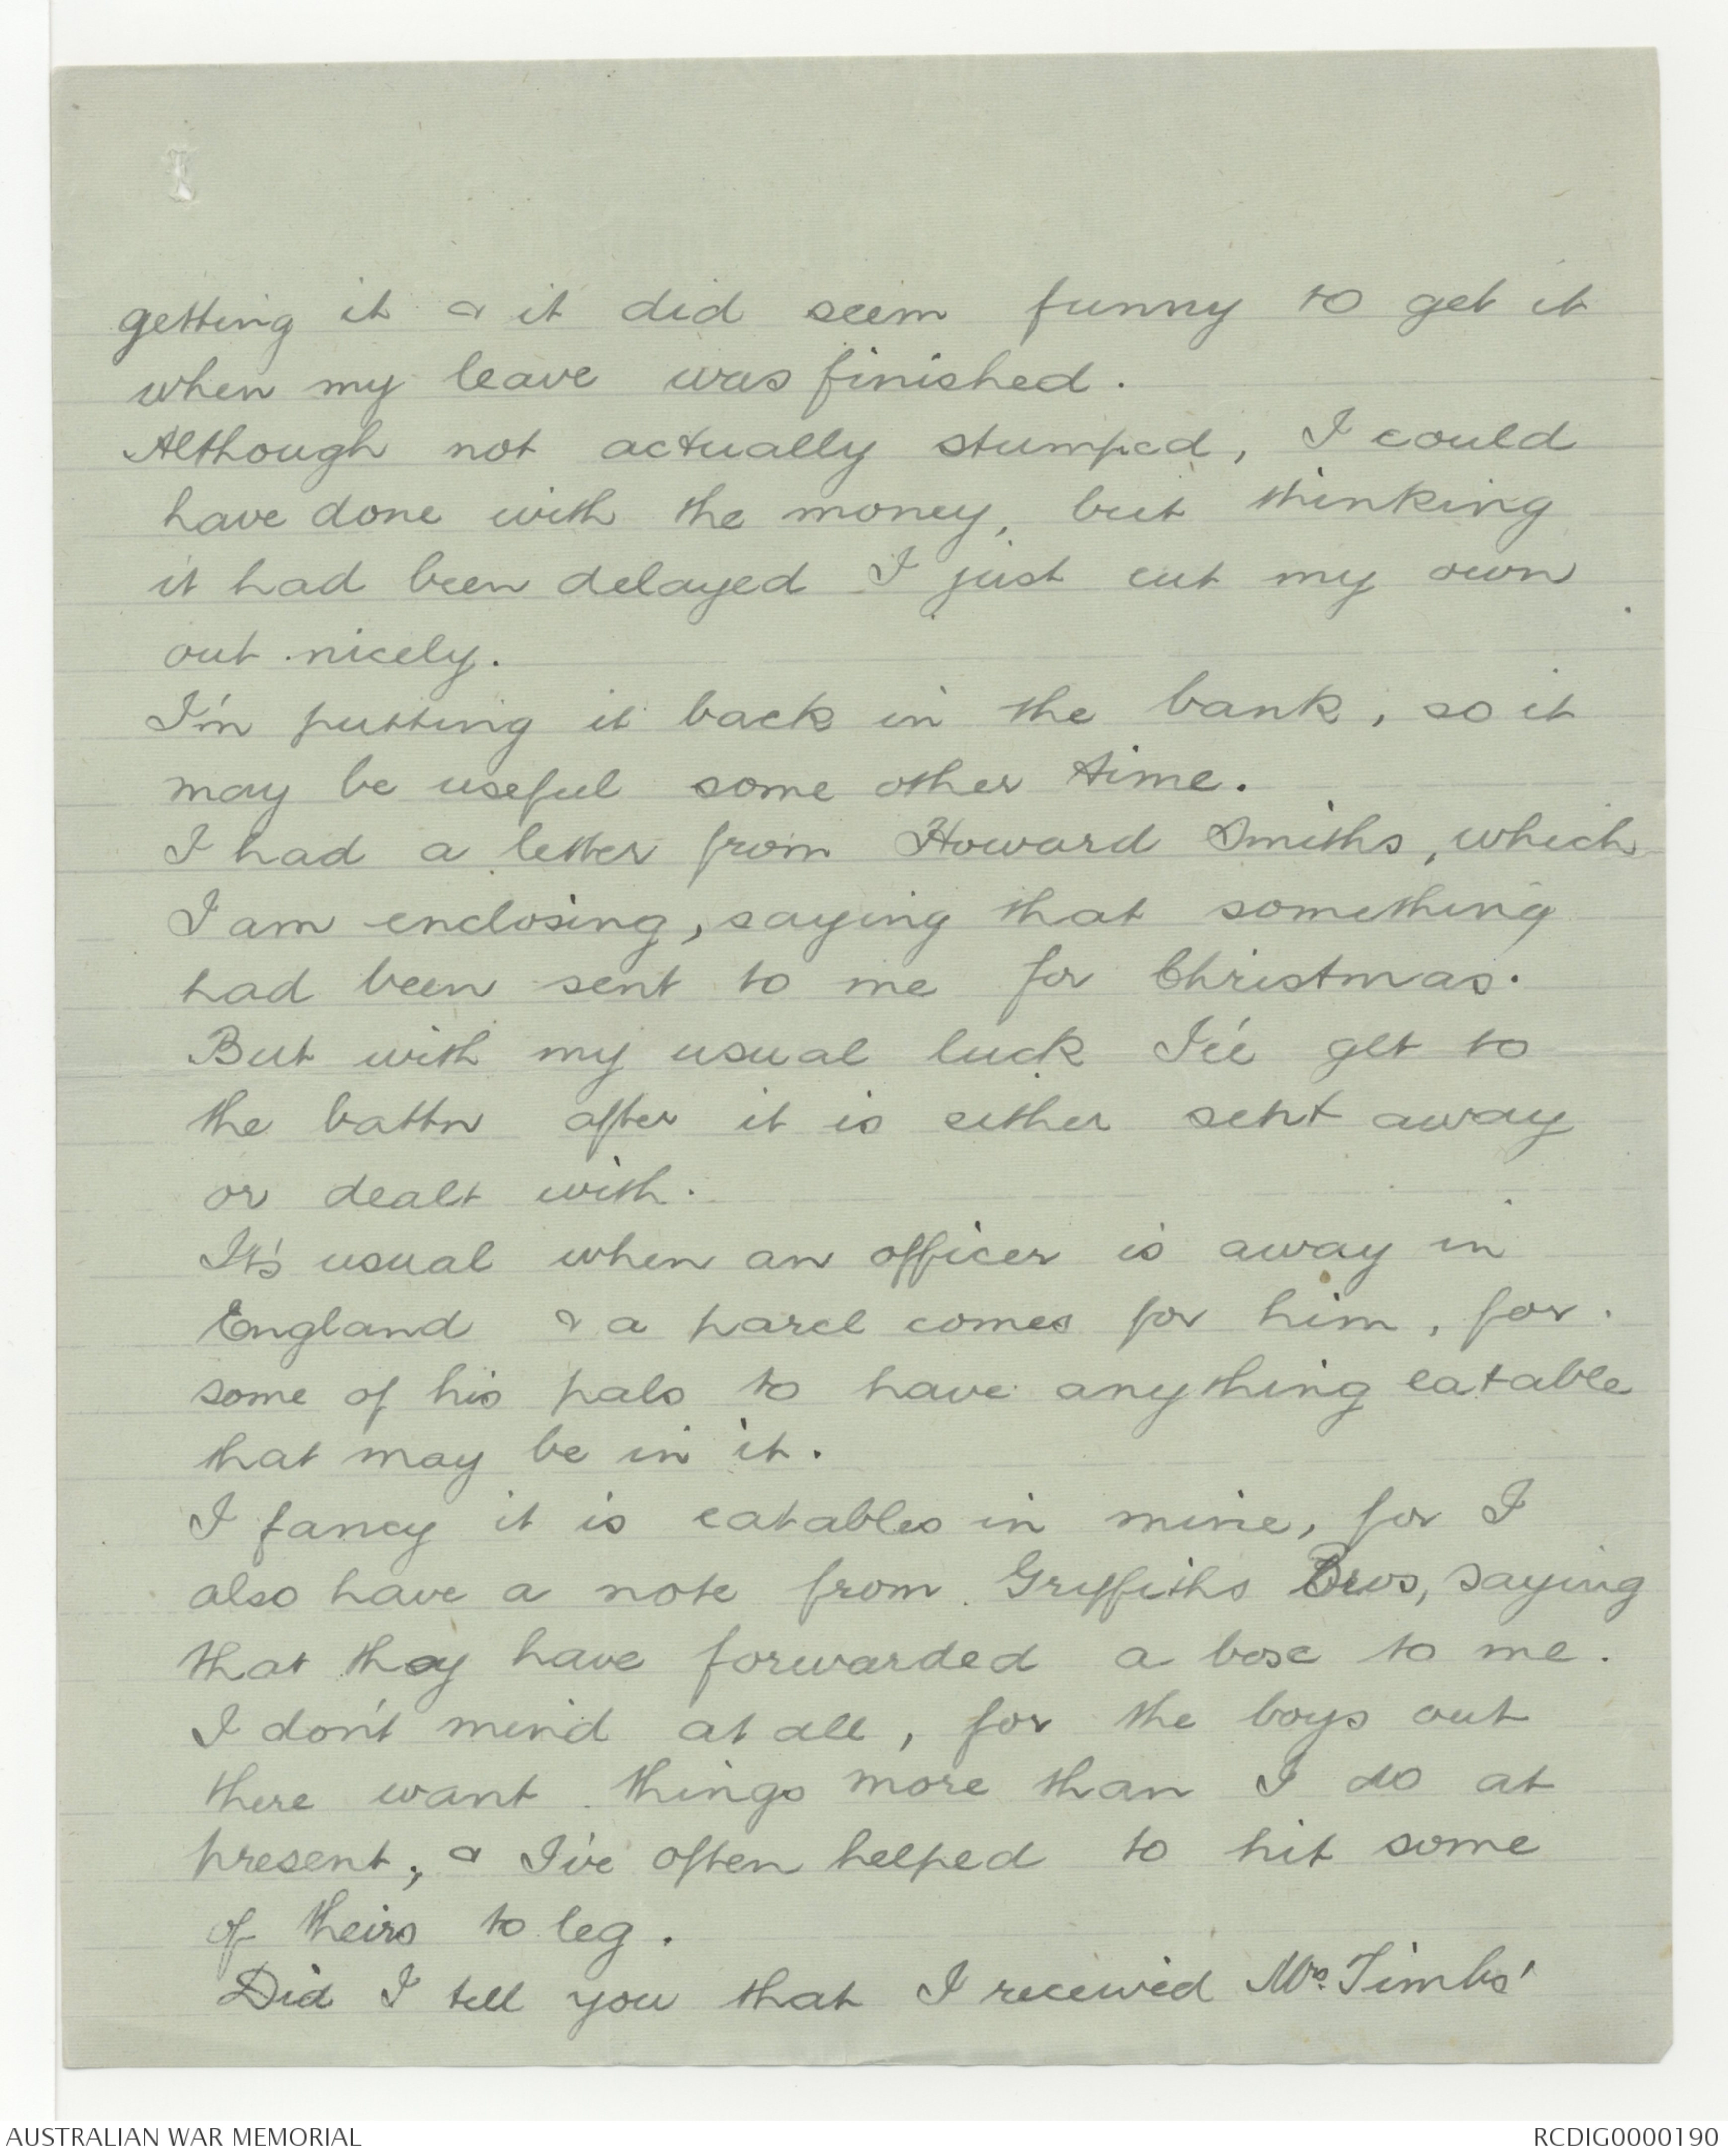 getting it & it did seem funny to get it
when my leave was finished.
Although not actually stumped, I could
have done with the money, but thinking
it had been delayed I just cut my own
out nicely.
I'm putting it back in the bank, so it
may be useful some other time.
I had a letter from Howard Smiths, which
I am enclosing, saying that something
had been sent to me for Christmas.
But with my usual luck I'll get to
the battn after it is either sent away
or dealt with.
It's usual when an officer is away in
England & a parcel comes for him, for
some of his pals to have anything eatable
that may be in it.
I fancy it is eatables in mine, for I
also have a note from Griffiths Bros, saying
that they have forwarded a box to me.
I don't mind at all, for the boys out
there want things more than I do at
present, & I've often helped to hit some
of theirs to leg.
Did I tell you that I received Mrs. Timbs'
AUSTRALIAN WAR MEMORIAL
RCDIG0000190